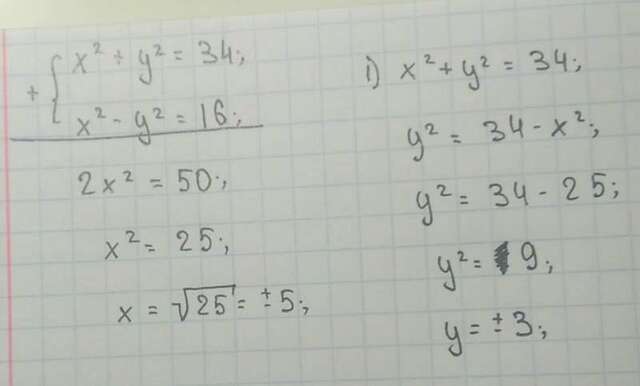 + { x² + y² = 34;
x² - y² = 16;
2x² = 50;
x² = 25;
x = √25 = ±5;
1) x² + y² = 34;
y² = 34 - x²;
y² = 34 - 25;
y² = 9;
y = ±3;